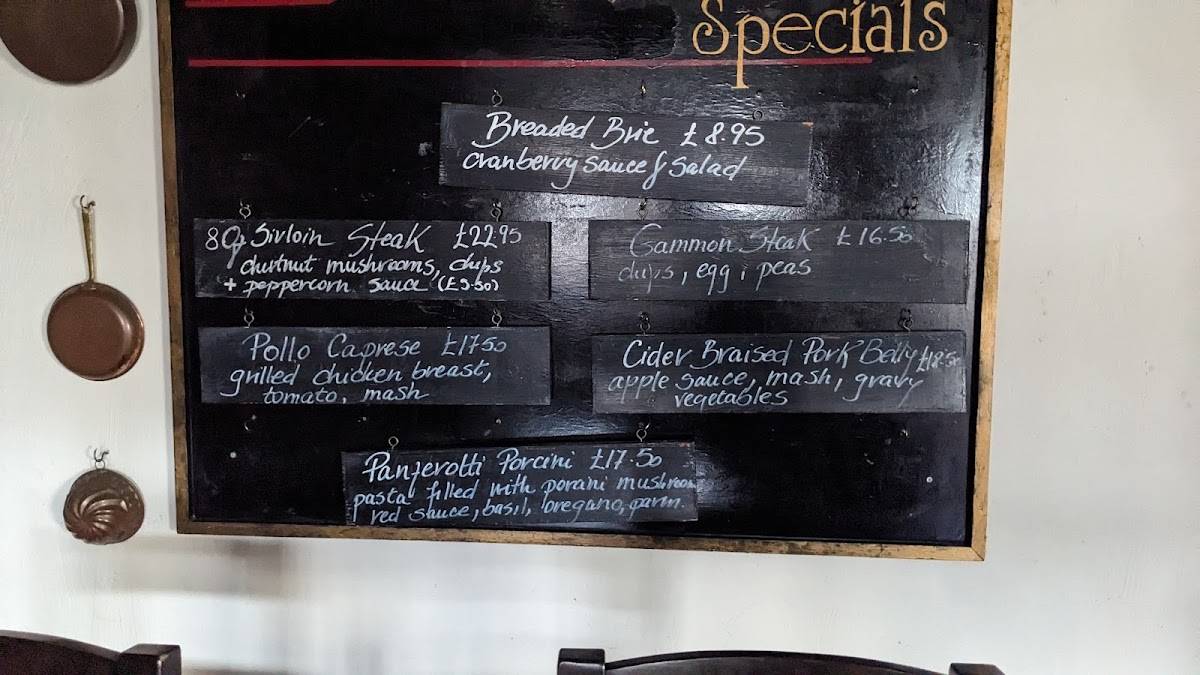 Specials
Breaded Brie £8.95
cranberry sauce & salad
8oz Sirloin Steak £22.95
chestnut mushrooms, chips
+ peppercorn sauce (£3.50)
Gammon Steak £16.50
chips, egg & peas
Pollo Caprese £17.50
grilled chicken breast,
tomato, mash
Cider Braised Pork Belly £18.50
apple sauce, mash, gravy
vegetables
Panzerotti Porcini £17.50
pasta filled with porcini mushroom
red sauce, basil, oregano, parm.